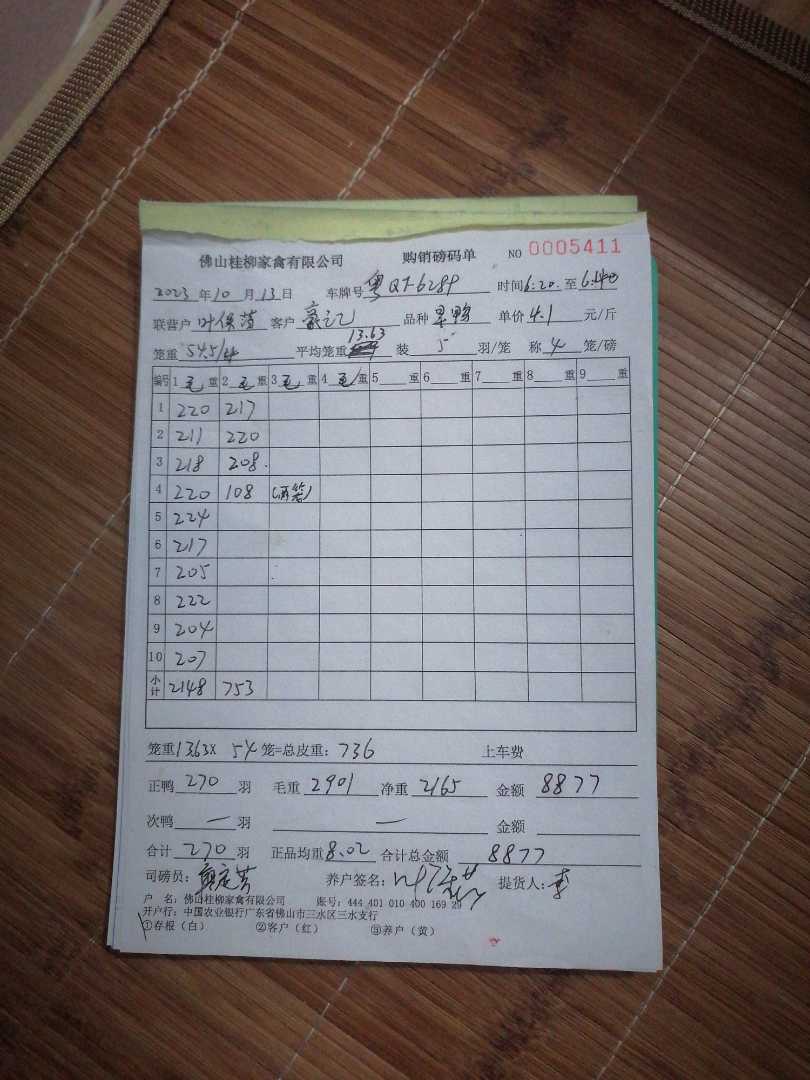 佛山桂柳家禽有限公司 购销磅码单 NO 0005411
2023 年 10 月 13 日 车牌号 粤QT628P 时间 6:20 至 6:40
联营户 叶保 客户 豪记 品种 单价 4.1 元/斤
笼重 54.5/4 平均笼重 13.63 装 5 羽/笼 称 4 笼/磅
编号 1 毛 重 2 毛 重 3 毛 重 4 毛 重 5 重 6 重 7 重 8 重 9 重
1 220 217
2 211 220
3 218 208.
4 220 108 (两笼)
5 224
6 217
7 205
8 222
9 204
10 207
小计 2148 753
笼重 13.63 X 54 笼=总皮重: 736 上车费
正鸭 270 羽 毛重 2901 净重 2165 金额 8877
次鸭 一 羽 一 金额
合计 270 羽 正品均重 8.02 合计总金额 8877
司磅员: 养户签名: 提货人: 李
户 名: 佛山桂柳家禽有限公司 账号: 444 401 010 400 169 29
开户行: 中国农业银行广东省佛山市三水区三水支行
①存根(白) ②客户(红) ③养户(黄)